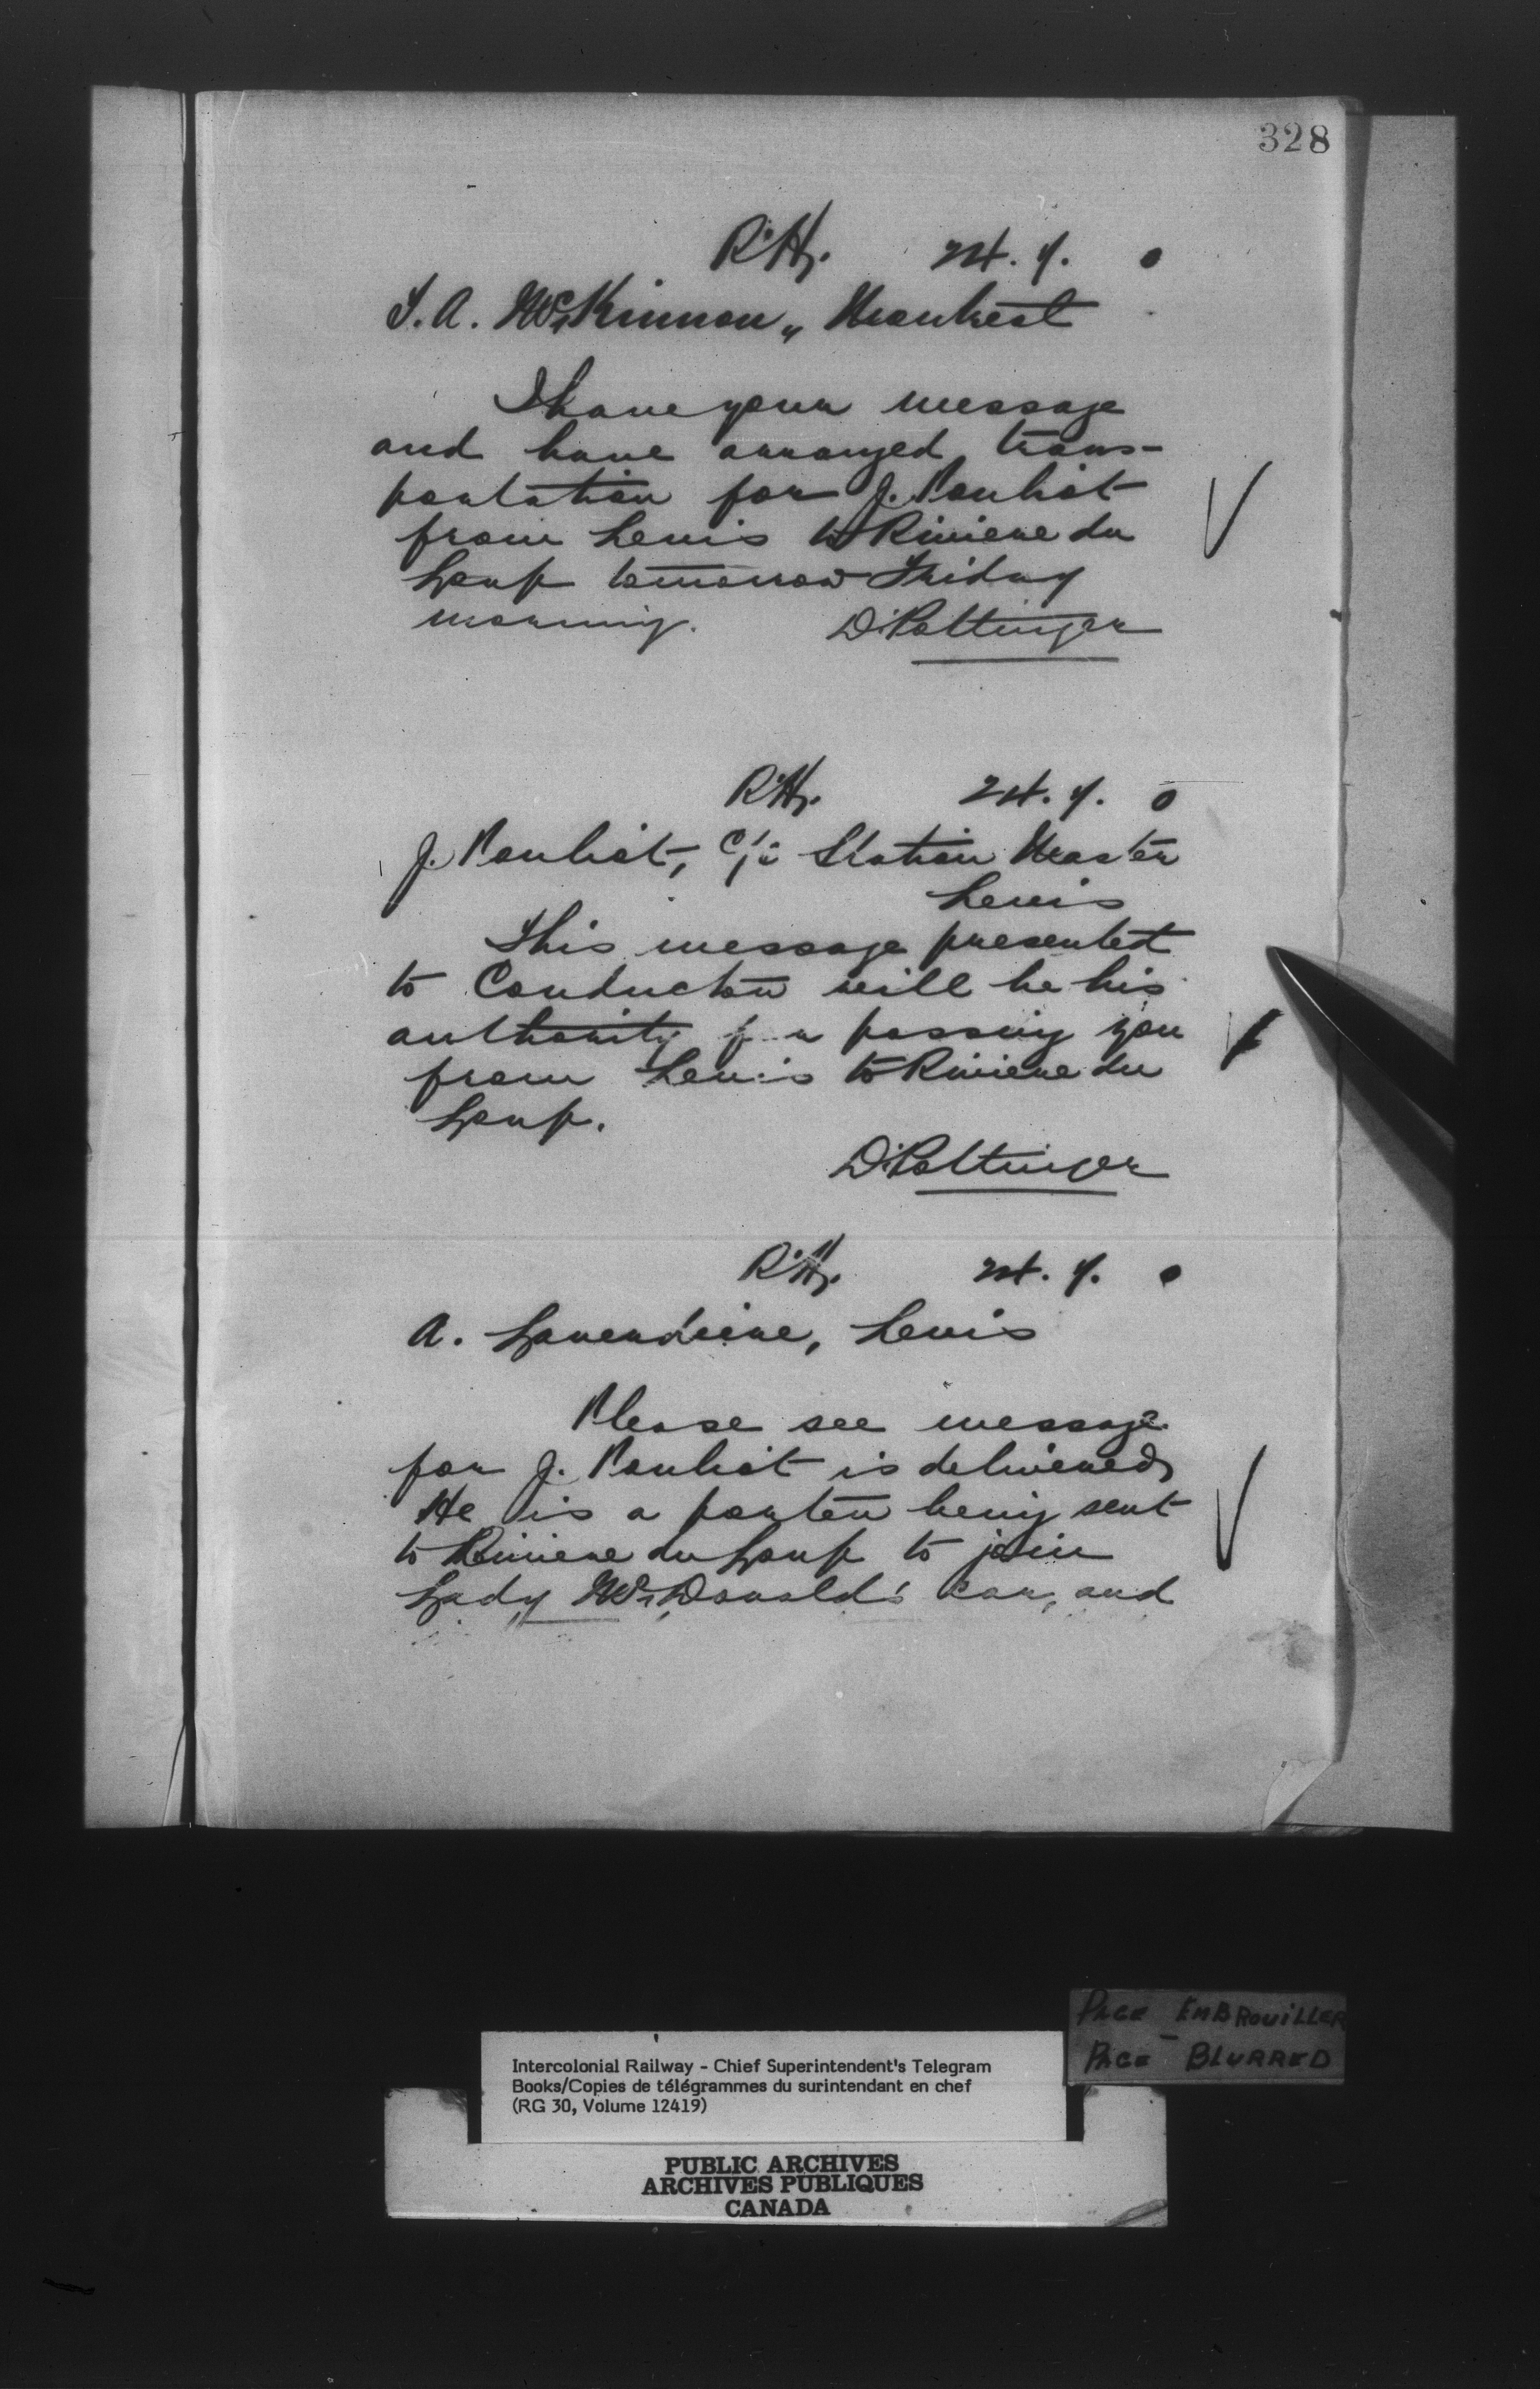 328
R.H. 24. 7. 0
T. A. McKinnon, Montreal
I have your message
and have arranged trans-
portation for J. Pouliot
from Levis to Riviere du
Loup tomorrow Friday
morning. D. Pottinger
R.H. 24. 7. 0
J. Pouliot, c/o Station Master
Levis
This message presented
to Conductor will be his
authority for passing you
from Levis to Riviere du
Loup.
D. Pottinger
R.H. 24. 7. 0
A. Laverdiere, Levis
Please see message
for J. Pouliot is delivered,
He is a porter being sent
to Riviere du Loup to join
Lady McDonald's car, and
PAGE EMBROUILLER
PAGE BLURRED
Intercolonial Railway - Chief Superintendent's Telegram
Books/Copies de télégrammes du surintendant en chef
(RG 30, Volume 12419)
PUBLIC ARCHIVES
ARCHIVES PUBLIQUES
CANADA